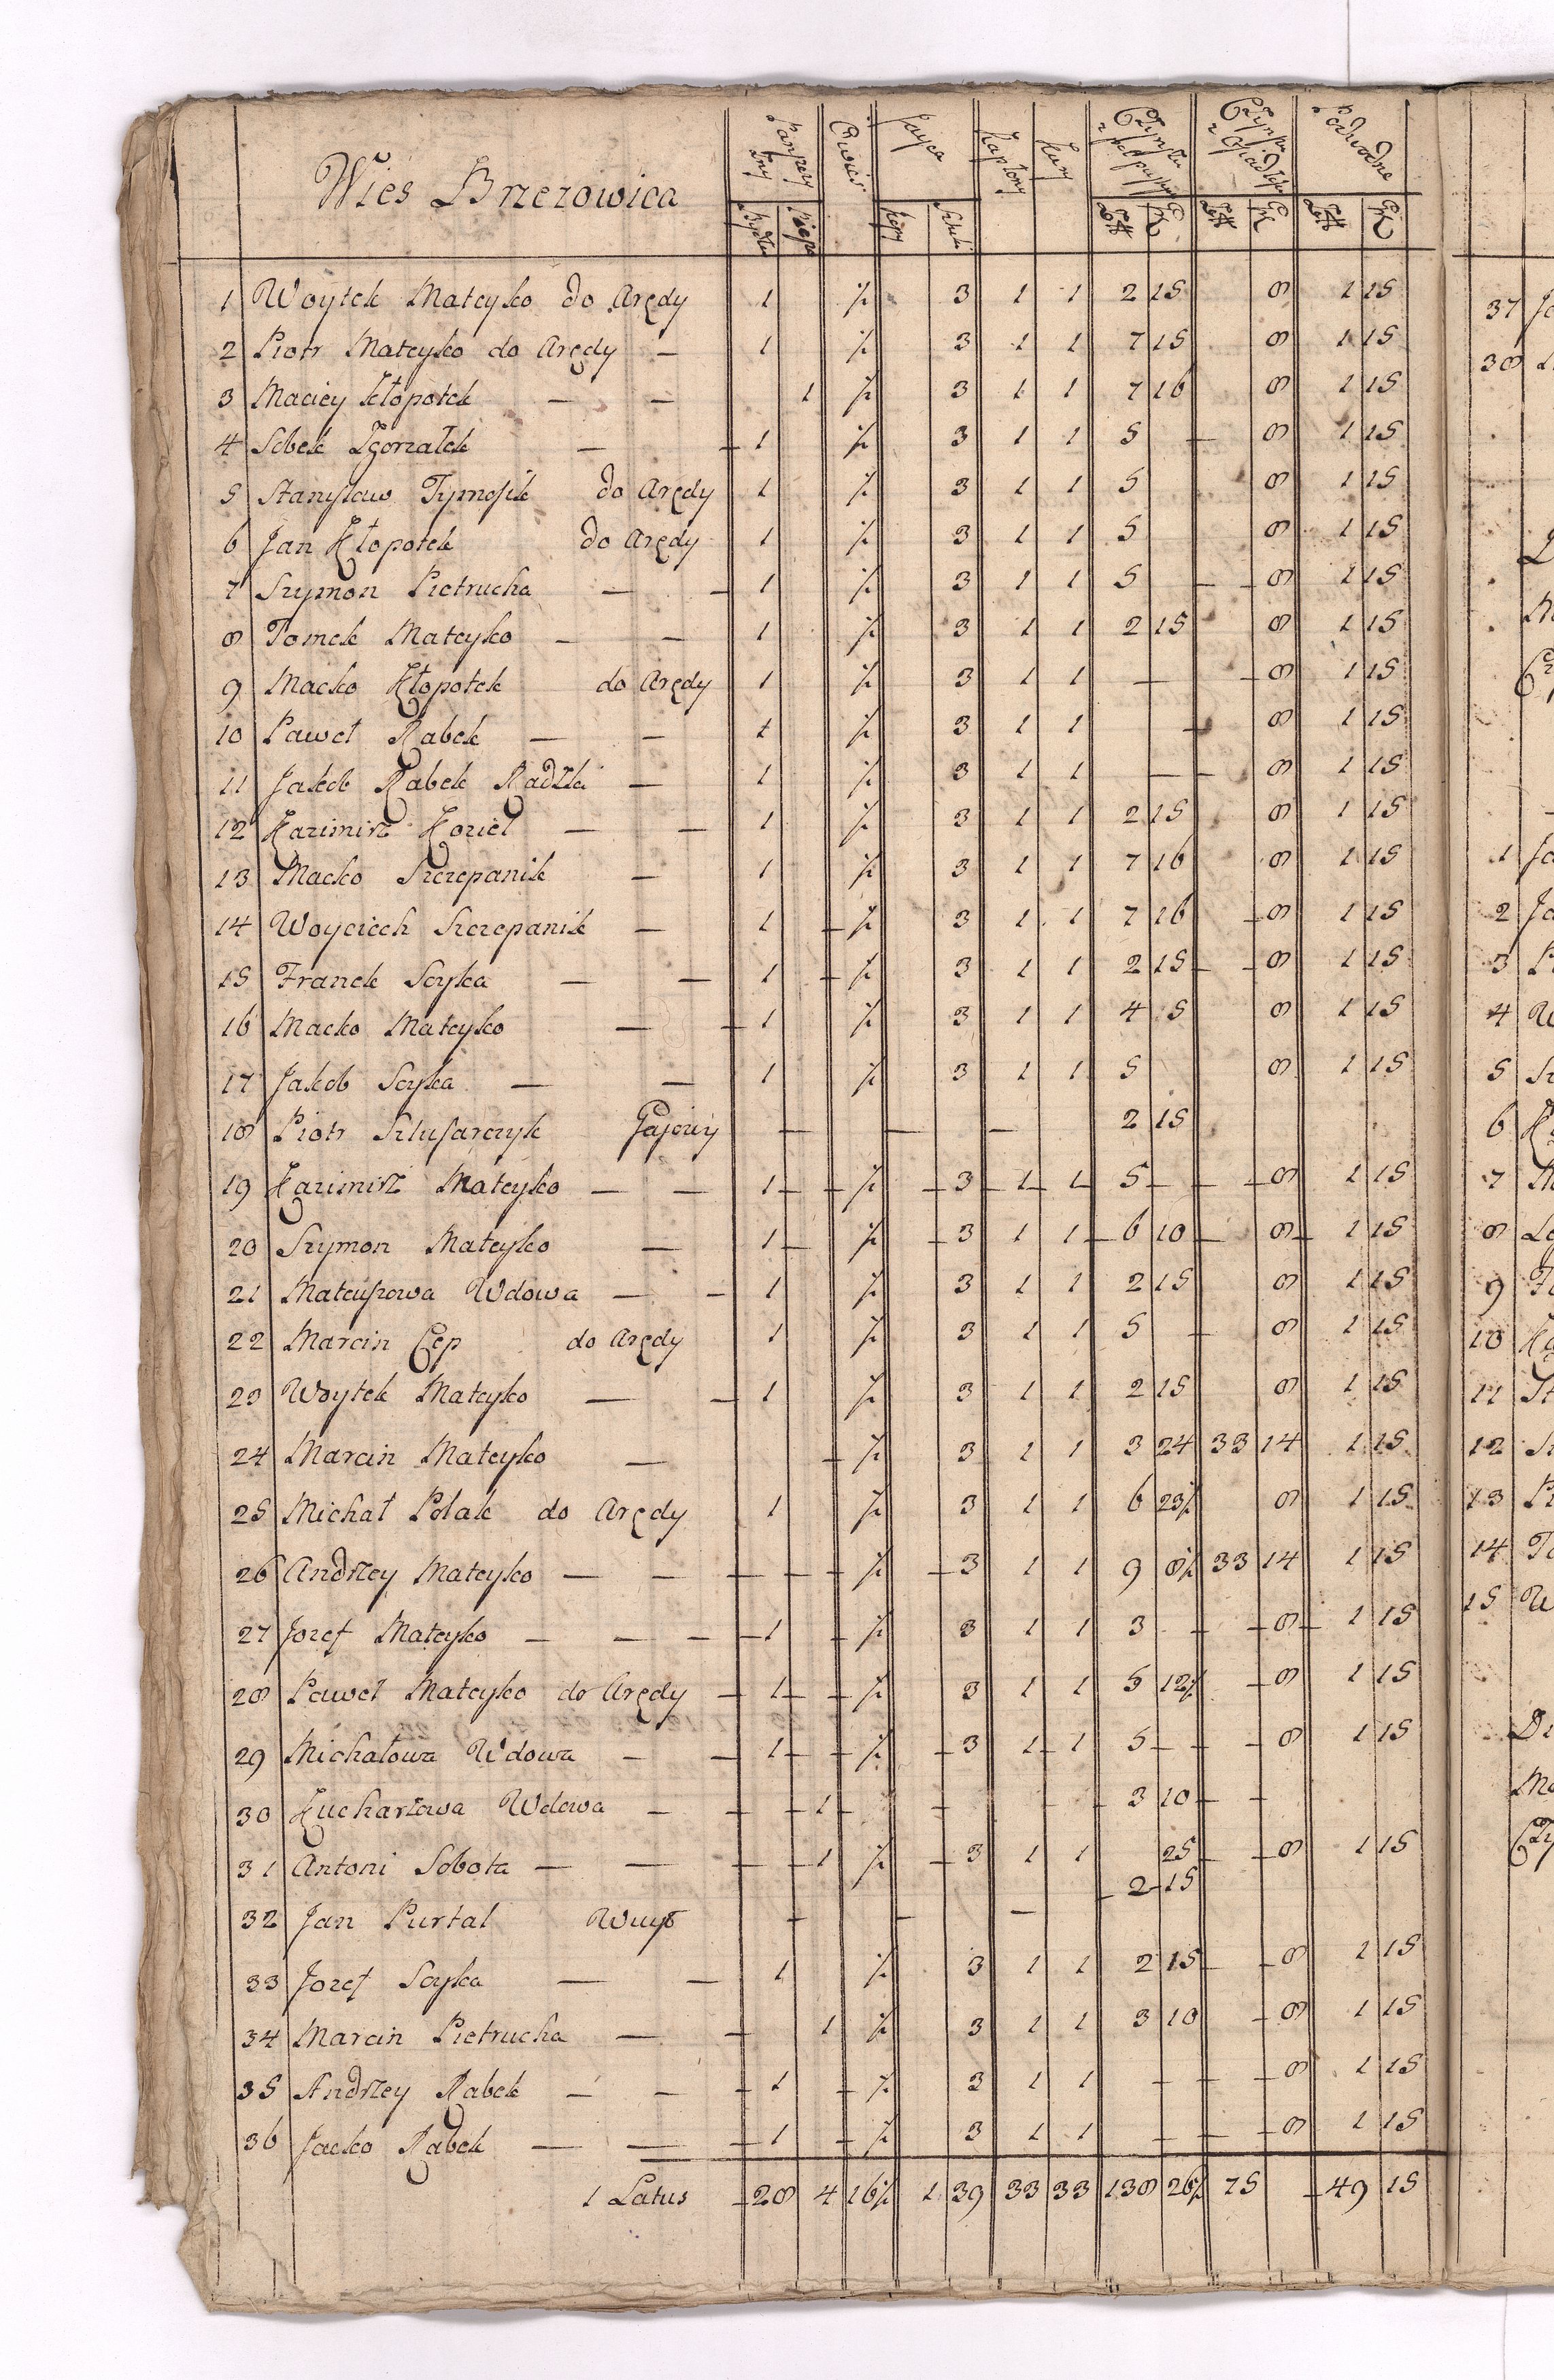 Wies Brzezowica
Panszczyzny Owies Jayca Kapłony Kury Czynszu Czynszu Podwodne
Bydłem Pieszo Kopy Sztuki Zł Gr Zł Gr Zł Gr
1 Woytek Mateyko do Arędy 1 ½ 3 1 1 2 15 8 1 15
2 Piotr Mateyko do Arędy — 1 ½ 3 1 1 7 15 8 1 15
3 Maciey Kłopotek — — 1 ½ 3 1 1 7 16 8 1 15
4 Sobek Zgorzałek — — 1 ½ 3 1 1 5 — 8 1 15
5 Stanysław Tymosik do Arędy 1 ½ 3 1 1 5 8 1 15
6 Jan Kłopotek do Arędy 1 ½ 3 1 1 5 8 1 15
7 Szymon Pietrucha — — 1 ½ 3 1 1 5 — — 8 1 15
8 Tomek Mateyko — — 1 ½ 3 1 1 2 15 8 1 15
9 Macko Kłopotek do Arędy 1 ½ 3 1 1 — — 8 1 15
10 Paweł Rabek — — 1 ½ 3 1 1 — 8 1 15
11 Jakob Rabek Radzki — 1 ½ 3 1 1 — — 8 1 15
12 Kazimirz Kozieł — — 1 ½ 3 1 1 2 15 8 1 15
13 Macko Szczepanik — 1 ½ 3 1 1 7 16 8 1 15
14 Woyciech Szczepanik — 1 — ½ 3 1 1 7 16 — 8 1 15
15 Franek Scyka — — 1 — ½ 3 1 1 2 15 — — 8 1 15
16 Macko Mateyko — — 1 ½ 3 1 1 4 5 8 1 15
17 Jakob Scyka — — 1 ½ 3 1 1 5 8 1 15
18 Piotr Szlusarczyk Gajowy — — — 2 15
19 Kazimirz Mateyko — — 1 — — ½ — 3 — 1 — 1 — 5 — — — 8 1 15
20 Szymon Mateyko — 1 — ½ — 3 1 1 — 6 10 — 8 — 1 15
21 Mateuszowa Wdowa — — 1 ½ 3 1 1 2 15 8 1 15
22 Marcin Cep do Arędy 1 ½ 3 1 1 5 — 8 1 15
23 Woytek Mateyko — — 1 ½ 3 1 1 2 15 8 1 15
24 Marcin Mateyko — — ½ 3 1 1 3 24 33 14 1 15
25 Michał Polak do Arędy 1 ½ 3 1 1 6 23½ 8 1 15
26 Andrzey Mateyko — — — — — ½ — 3 1 1 9 8½ 33 14 1 15
27 Jozef Mateyko — — — — 1 — ½ 3 1 1 3 — — — 8 — 1 15
28 Paweł Mateyko do Arędy — 1 — — ½ 3 1 1 5 12½ — 8 1 15
29 Michałowa Wdowa — — 1 — — ½ — 3 1 — 1 5 — — — 8 1 15
30 Kucharzowa Wdowa — — — 1 — — — 3 10 — —
31 Antoni Sobota — — — — 1 ½ — 3 1 1 25 — — 8 1 15
— 2 — 15
32 Jan Purtal Wuyt — — —
33 Jozef Scyka — — 1 ½ 3 1 1 2 15 — — 8 1 15
34 Marcin Pietrucha — — 1 ½ 3 1 1 3 10 — 8 1 15
35 Andrzey Rabek — — — 1 — ½ 3 1 1 — — — 8 1 15
36 Jacko Rabek — — — 1 — ½ 3 1 1 — — — 8 1 15
1 Latus — 28 4 16½ 1 39 33 33 138 26½ 75 — 49 15
37
38
1
2
3
4
5
6
7
8
9
10
11
12
13
14
15